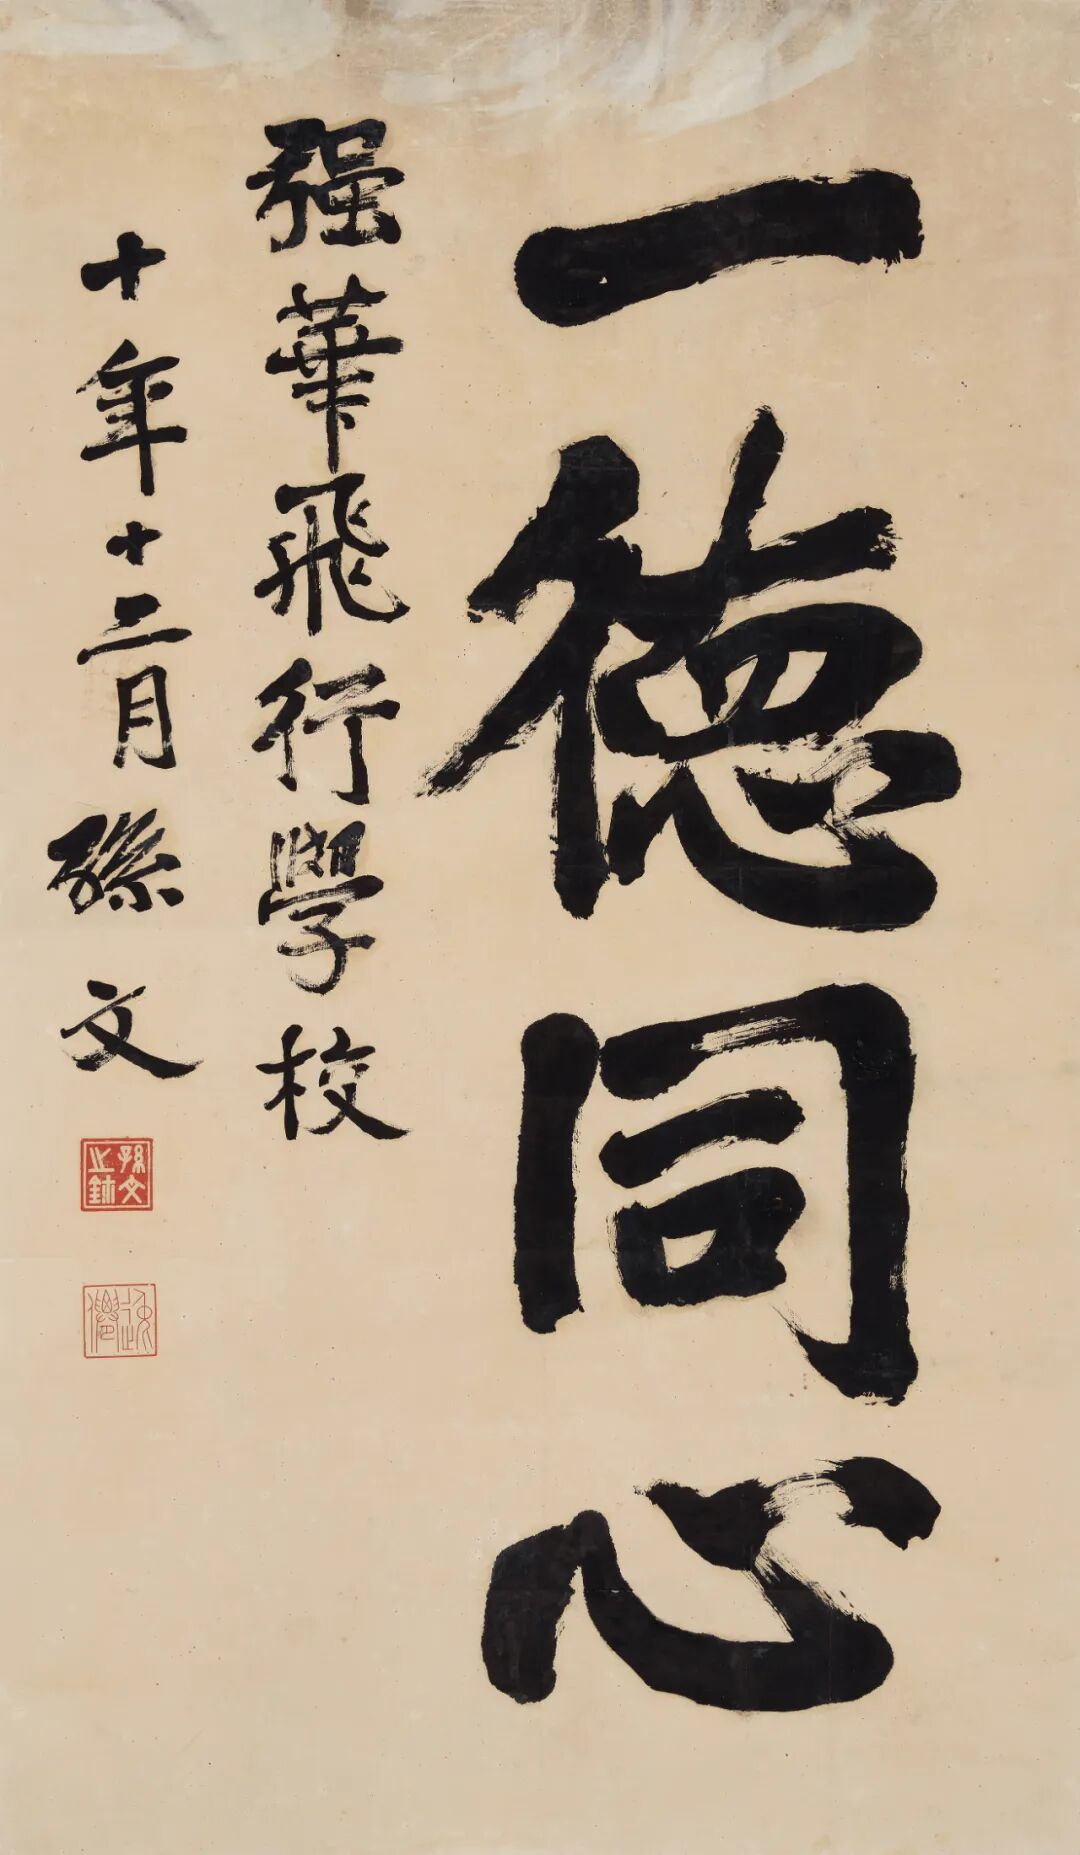 一德同心
强華飛行學校
十年十二月 孫文
孫文之鉥